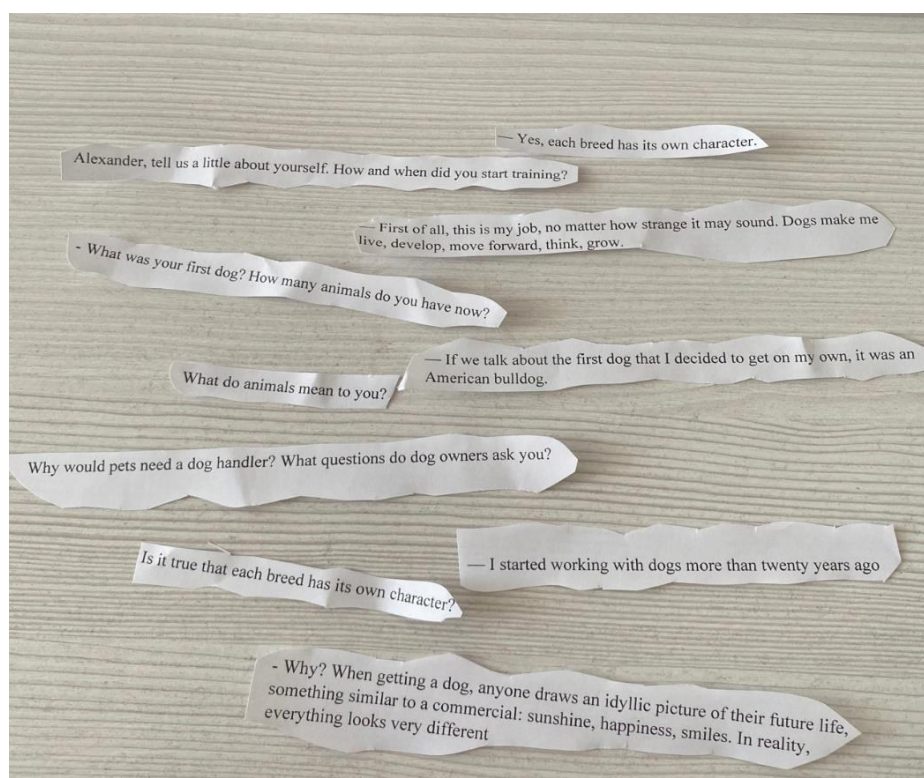 — Yes, each breed has its own character.
Alexander, tell us a little about yourself. How and when did you start training?
— First of all, this is my job, no matter how strange it may sound. Dogs make me
live, develop, move forward, think, grow.
- What was your first dog? How many animals do you have now?
— If we talk about the first dog that I decided to get on my own, it was an
American bulldog.
What do animals mean to you?
Why would pets need a dog handler? What questions do dog owners ask you?
Is it true that each breed has its own character?
— I started working with dogs more than twenty years ago
- Why? When getting a dog, anyone draws an idyllic picture of their future life,
something similar to a commercial: sunshine, happiness, smiles. In reality,
everything looks very different